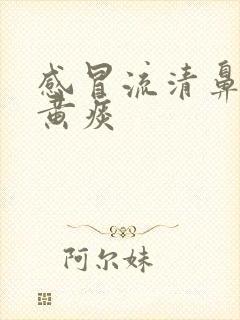 感冒流清鼻
黄痰
阿尔妹